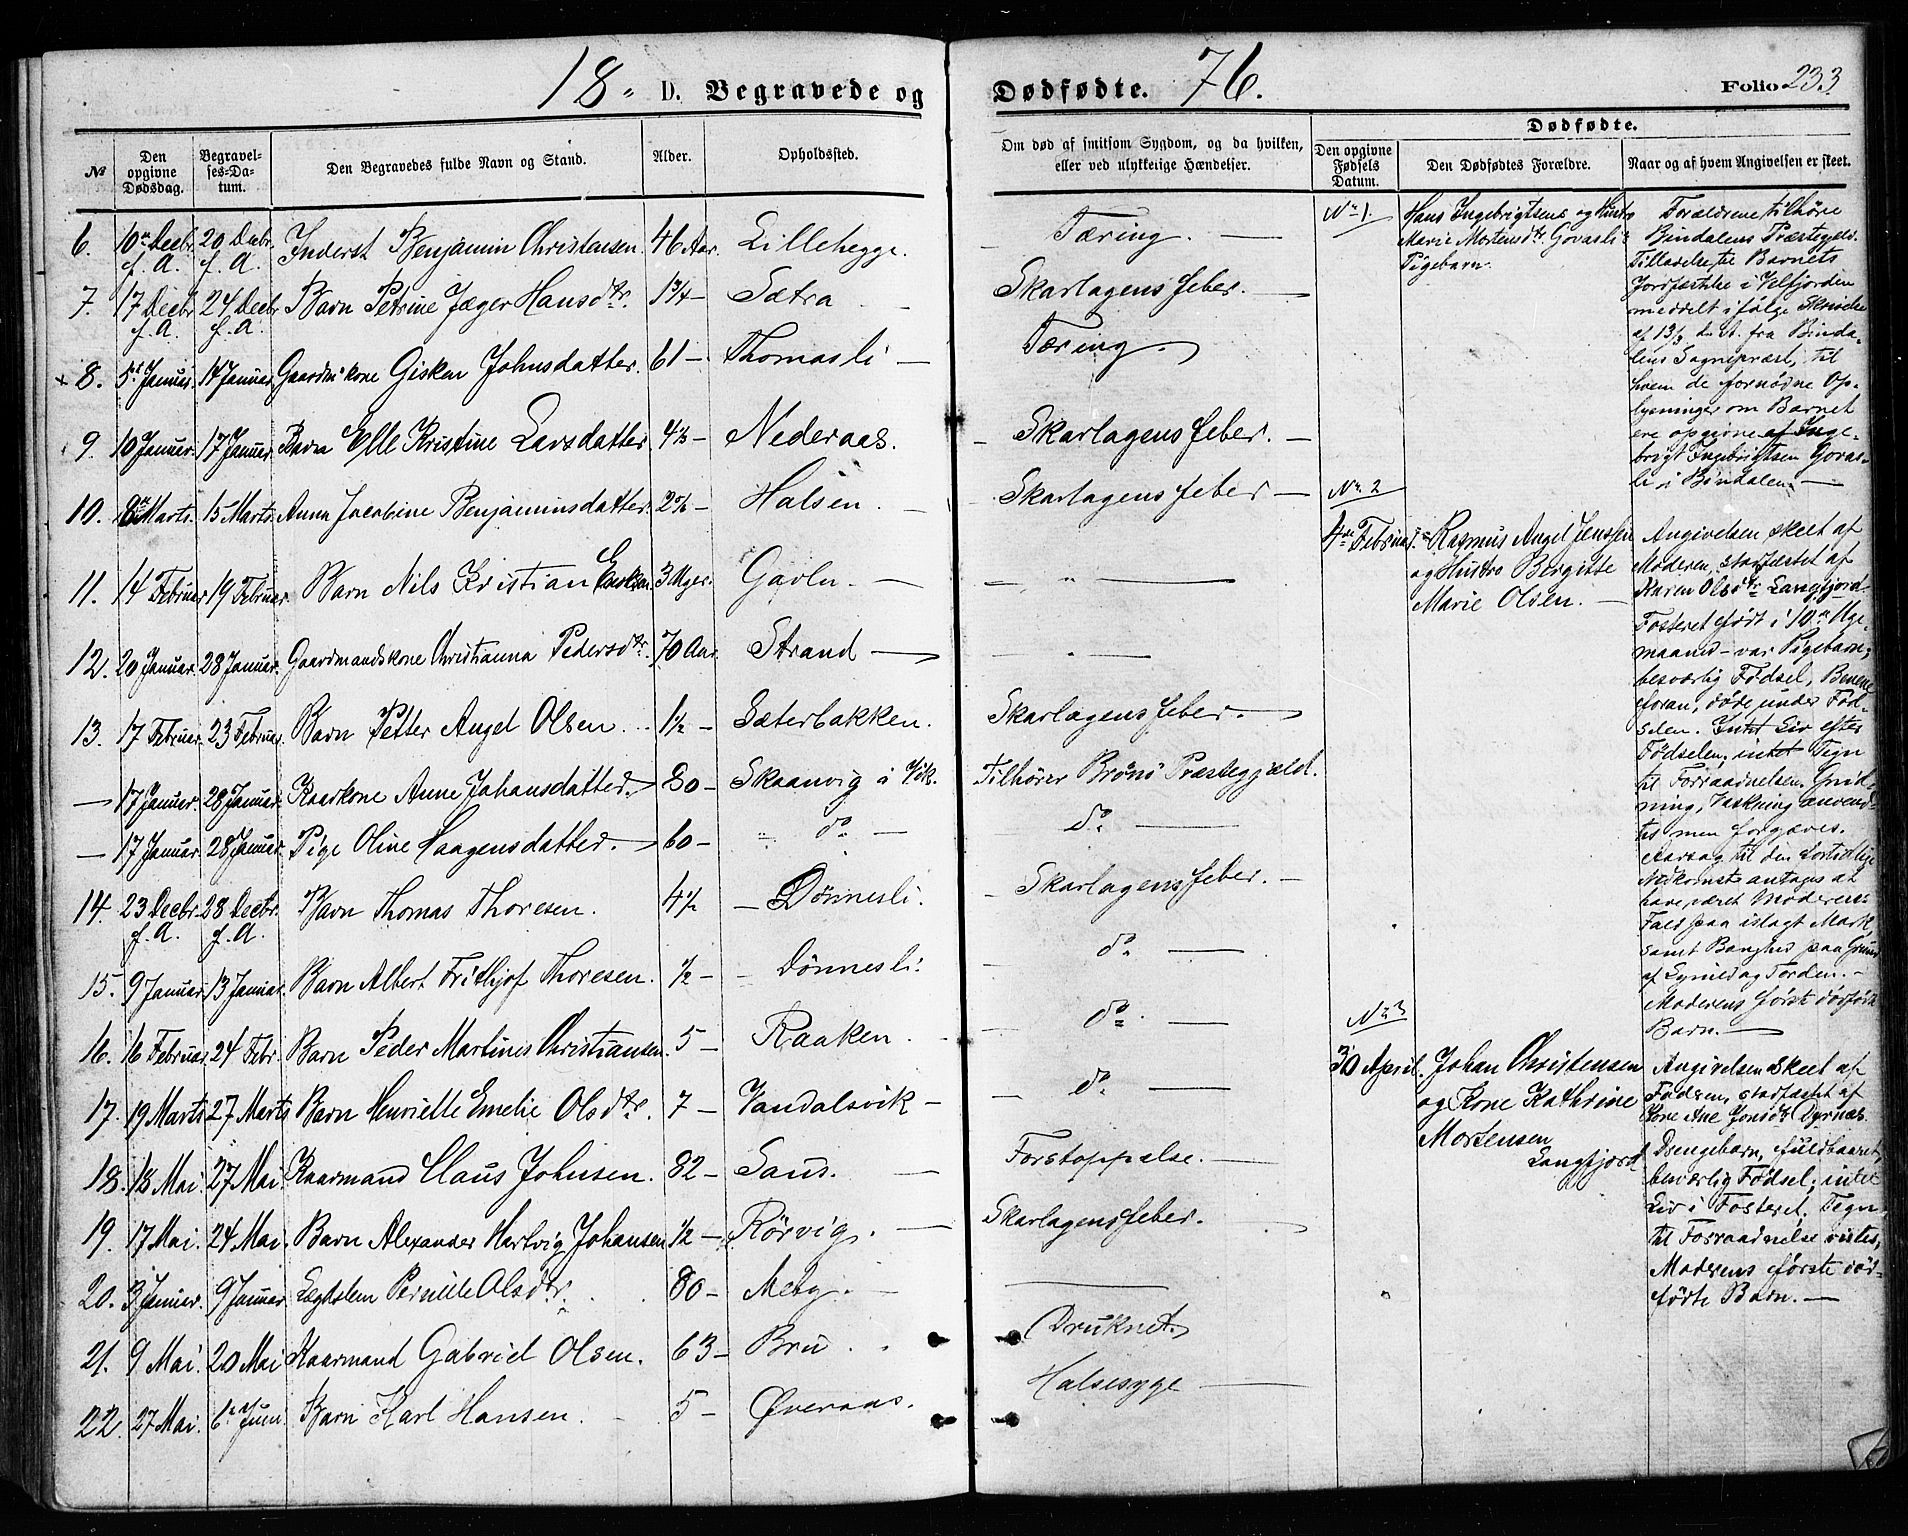 18
D. Begravede og
Dødfødte.
76.
Folio 233
№
Den opgivne Dødsdag.
Begravelses-Datum.
Den Begravedes fulde Navn og Stand.
Alder.
Opholdssted.
Om død af smitsom Sygdom, og da hvilken, eller ved ulykkelige Hændelser.
Dødfødte.
Den opgivne Fødsels Datum.
Den Dødfødtes Forældre.
Naar og af hvem Angivelsen er skeet.
6. 10 Decbr f. A. 20 Decbr f. A. Inderst Benjamin Christensen 46 Aar. Lillehegge. Tæring.
7. 17 Decbr f. A. 24 Decbr f. A. Barn Petrine Jæger Hansdtr. 1 3/4 - Sætra Skarlagensfeber.
8. 5 Januar 14 Januar Gaardmkone Gisken Johnsdatter. 61 - Thomasli - Tæring
9. 10 Januar. 17 Januar Barn Elle Kristine Larsdatter 4½ - Nederaas. Skarlagensfeber.
10. 8 Marts. 15 Marts. Anna Jacobine Benjaminsdatter. - Halsen. Skarlagensfeber
11. 14 Februar 19 Februar. Barn Nils Kristian 3 Uger. Gavln. - "
12. 20 Januar. 28 Januar. Gaardmandskone Christianna Pedersdtr. 70 Aar Strand - "
13. 17 Februar. 23 Februar. Barn Petter Angel Olsen 1½ - Sæterbakken. Skarlagensfeber.
- 17 Januar. 28 Januar. Kaarkone Anne Johansdatter. 80 - Skaanvig i Vik. Tilhører Brønø Præstegjæld.
- 17 Januar. 28 Januar. Pige Oline Haagensdatter. 60 - do - do
14. 23 Decbr. f. A. 28 Decbr. f. A. Barn Thomas Thoresen. 4½ - Dønnesli. Skarlagensfeber.
15. 9 Januar. 13 Januar. Barn Albert Frithjof Thoresen. ½ - Dønnesli. do
16. 16 Februar 24 Febr. Barn Peder Martines Christiansen. 5 - Raaken. do
17. 19 Marts 27 Marts Barn Henriette Emelie Olsdtr. 7 - Vandalsvik - do
18. 18 Mai. 27 Mai. Kaarmand Claus Johnsen. 82 - Saus. Forstoppelse.
19. 17 Mai. 24 Mai. Barn Alexander Hartvig Johansen ½ - Rørvig. Skarlagensfeber.
20. 3 Januar. 9 Januar Lægdslem Pernille Olsdtr. 80 - Meby.
21. 9 Mai. 20 Mai Kaarmand Gabriel Olsen. 63 - Bru Druknet.
22. 27 Mai. 6 Juni. Barn Karl Hansen. 5 - Øveraas. Halsesyge
No 1.
Hans Ingebrigtsens og Hustru
Marie Mortensdtr Govasli
Pigebarn.
Forældrene tilhøre
Bindalens Præstegjeld.
Tilladelse til Barnets
Jordfæstelse i Velfjorden
meddelt ifølge Skrivelse
af 13/3 d. A. fra Binda-
lens Sognepræst, til
hvem de fornødne Op-
lysninger om Barnet
ere opgivne af Inge-
brigt Ingebrigtsen Govas-
li i Bindalen. -
No 2
4de Februar. Rasmus Angel Jenssen
og Hustru Bergitte
Marie Olsen.
Angivelsen skeet af
Moderen, stadfæstet af
Karen Olsdtr Langfjord.
Fosteret født i 10de Uge-
maaned - var Pigebarn;
besværlig Fødsel, Benene
foran, døde under Fød-
selen. Intet Liv efter
Fødselen, intet Tegn
til Forraadnelsen. Gnid-
ning, Vaskning anvend-
tes men forgjæves.
Aarsag til den fortidlige
Nedkomst antages at
have været Moderens
Fald paa islagt Mark
samt Banghed paa Grund
af Lynild og Torden. -
Moderens første dødfødte
Barn. -
No 3
30 April. Johan Christensen
og Kone Kathrine
Mortensen
Langfjord
Angivelsen skeet af
Faderen, stadfæstet af
Kone Ane Jonsdtr Dyrnæs.
Drengebarn, fuldbaaret,
besværlig Fødsel; intet
Liv i Fosteret. Tegn
til Forraadnelse vistes,
Moderens første død-
fødte Barn. -